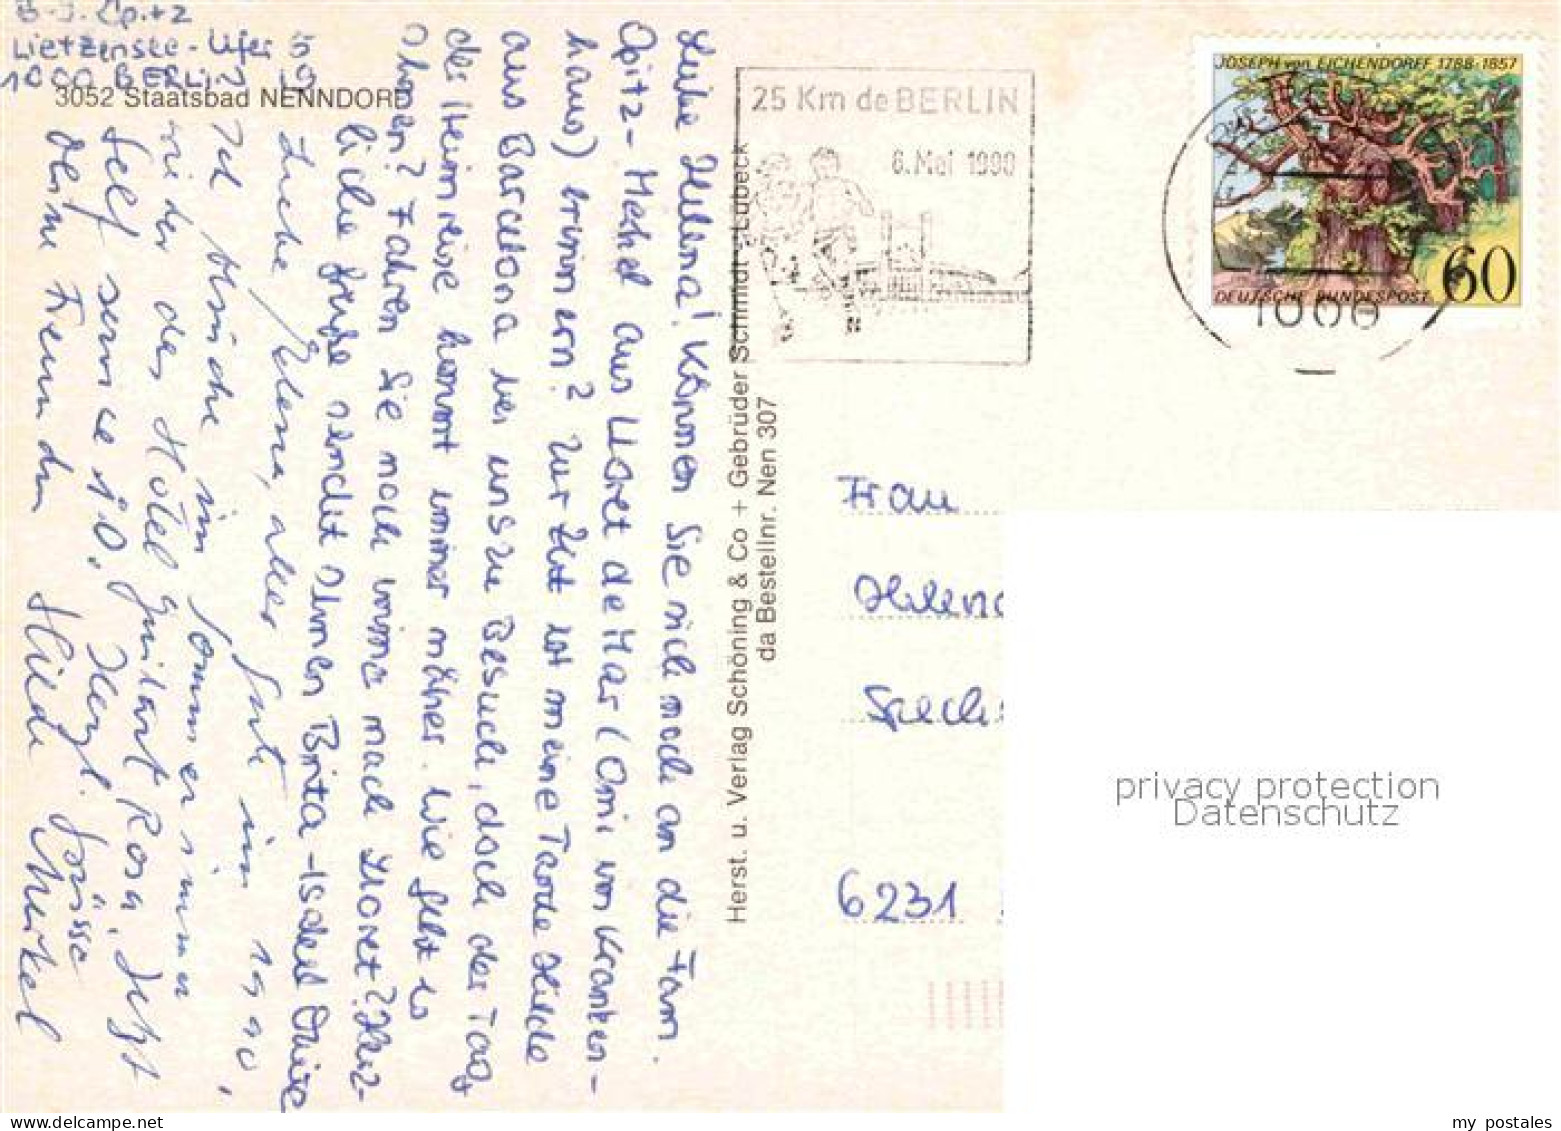 B-J. Opitz
Lietzensee-Ufer 5
1000 BERLIN 19
3052 Staatsbad NENNDORF
Liebe Helena! Können Sie sich noch an die Fam.
Opitz-Mechel aus Lloret de Mar (Omi von Kranken-
haus) erinnern? Zur Zeit ist meine Tante Hilde
aus Barcelona bei uns zu Besuch, doch der Tag
der Heimreise kommt immer näher. Wie geht es
Ihnen? Fahren Sie noch immer nach Lloret? Herz-
liche Grüße sendet Ihnen Brita-Isabel Opitz
Liebe Helena, alles Gute im 1990,
Ich bin im Sommer immer
wieder des Hotel Guitart Rosa, Jetzt
Self service i.O. Herzl. Grüsse
Deine Freundin Hilde Merkel
Herst. u. Verlag Schöning & Co + Gebrüder Schmidt - Lübeck
da Bestellnr. Nen 307
25 Km de BERLIN
6. Mai 1990
JOSEPH von EICHENDORFF 1788-1857
60
DEUTSCHE BUNDESPOST
1000
Frau
Helena
6231
privacy protection
Datenschutz
my postales